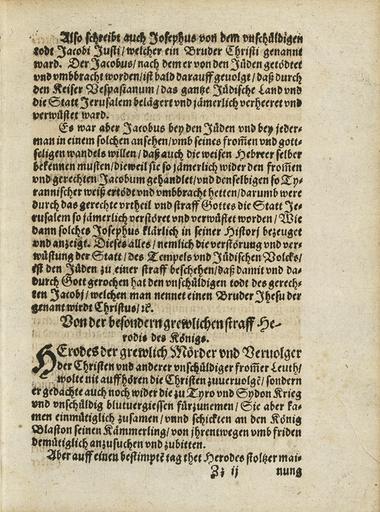 Also schreibt auch Josephus von dem vnschüldigen
todt Jacobi Justi/ welcher ein Bruder Christi genannt
ward. Der Jacobus/ nach dem er von den Jüden getödtet
vnd vmbbracht worden/ ist bald darauff geuolgt/ daß durch
den Keiser Vespasianum/ das gantze Jüdische Land vnd
die Statt Jerusalem belägert vnd jämerlich verheeret vnd
verwüstet ward.
Es war aber Jacobus bey den Jüden vnd bey jeder-
man in einem solchen ansehen/ vmb seines from̃en vnd gott-
seligen wandels willen/ daß auch die weisen Hebreer selber
bekennen musten/ die weil sie so jämerlich wider den from̃en
vnd gerechten Jacobum gehandlet/ vnd denselbigen so Ty-
rannischer weiß ertödt vnd vmbbracht hetten/ darumb were
durch das gerechte vrtheil vnd straff Gottes die Statt Je-
rusalem so jämerlich verstöret vnd verwüstet worden/ Wie
dann solches Josephus klärlich in seiner Histori bezeuget
vnd anzeigt. Dieses alles/ nemlich die verstörung vnd ver-
wüstung der Statt/ des Tempels vnd Jüdischen Volcks/
ist den Jüden zu einer straff beschehen/ daß damit vnd da-
durch Gott gerochen hat den vnschüldigen todt des gerech-
ten Jacobi/ welchen man nennet einen Bruder Jhesu der
genant wirdt Christus/ ꝛc.
Von der besondern grewlichen straff He-
rodis des Königs.
HErodes der grewlich Mörder vnd Veruolger
der Christen vnd anderer vnschüldiger from̃er Leuth/
wolte nit auffhören die Christen zuueruolgẽ/ sondern
er gedachte auch noch wider die zu Tyro vnd Sydon Krieg
vnd vnschüldig blutuergiessen fürzunemen/ Sie aber ka-
men einmütiglich zusamen/ vnnd schickten an den König
Blaston seinen Kämmerling/ von jhrentwegen vmb friden
demütiglich anzusuchen vnd zubitten.
Aber auff einen bestimptẽ tag thet Herodes stoltzer mai-
Zz ij nung